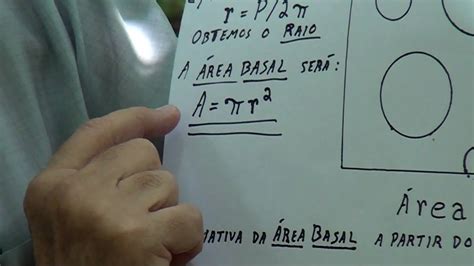 r = P/2π
OBTEMOS O RAIO
A ÁREA BASAL SERÁ:
A = πr²
Área
DA ÁREA BASAL A PARTIR DO